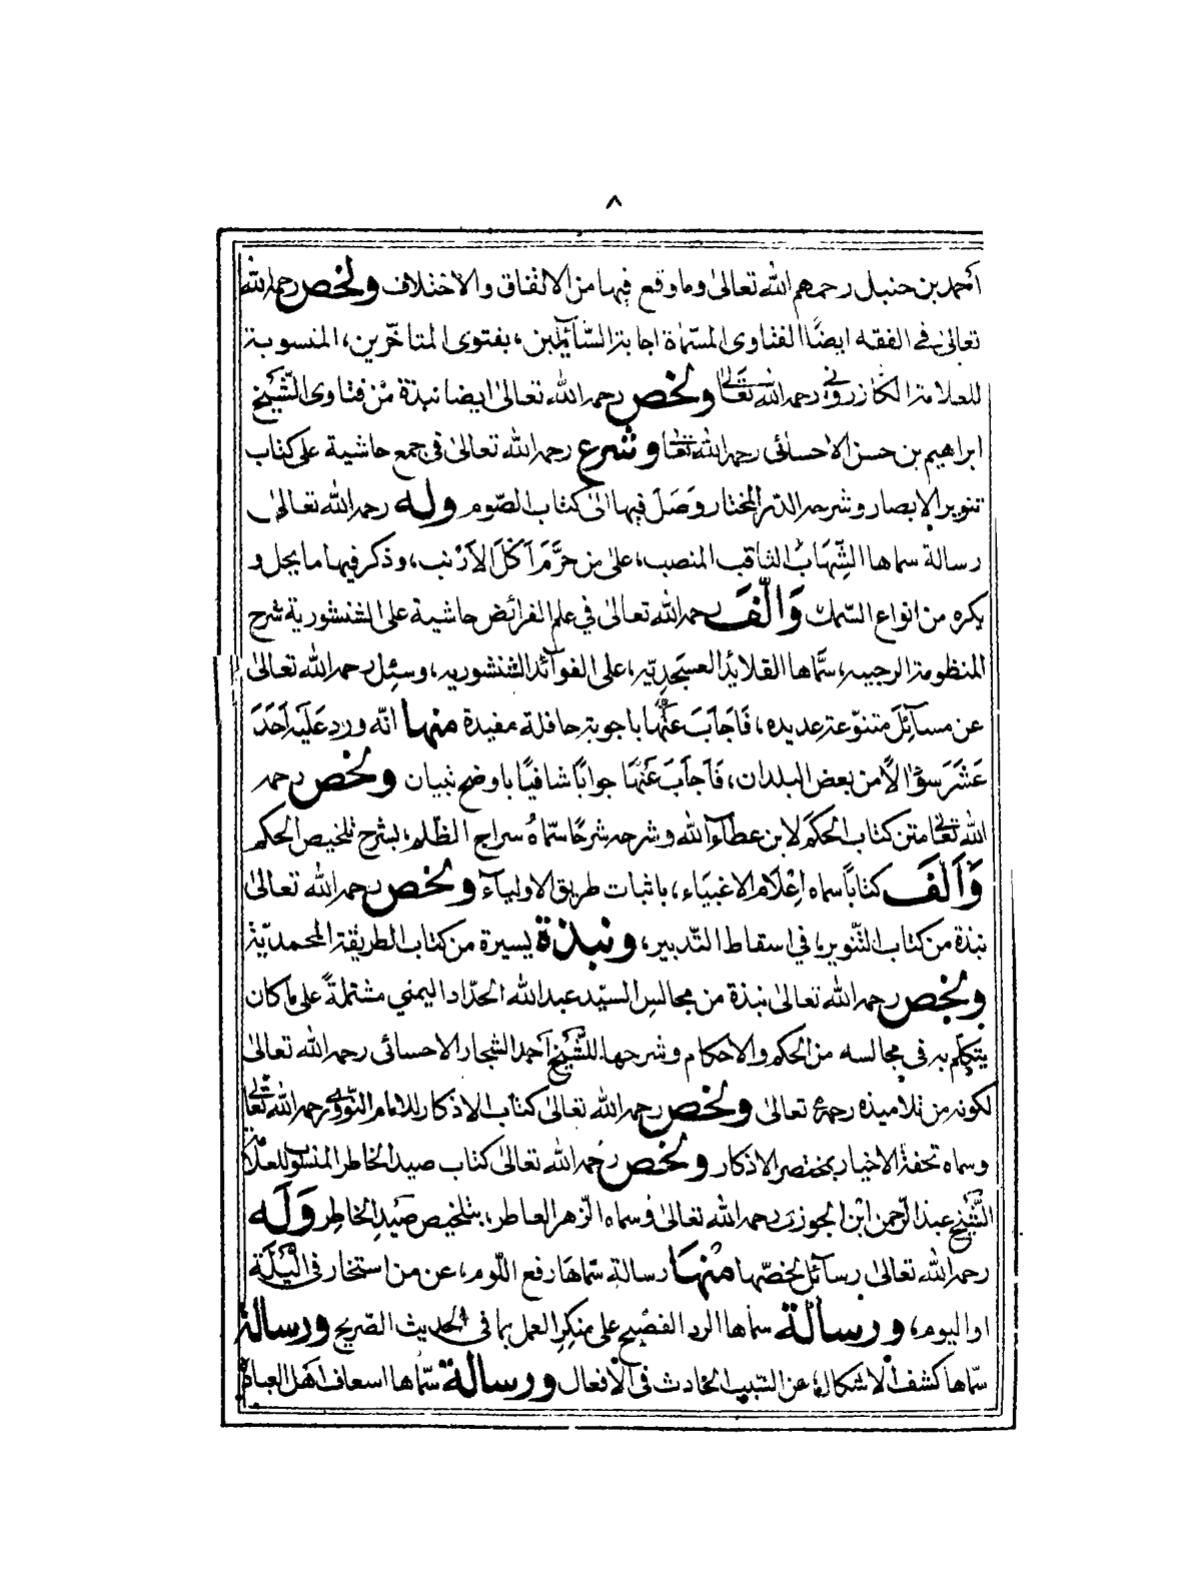 ٨
أحمد بن حنبل رحمهم الله تعالى وما وقع فيها من الاتفاق والاختلاف ولخص رحمه الله
تعالى في الفقه ايضًا الفتاوى المسماة اجابة السّائلين، بفتوى المتأخّرين، المنسوبة
للعلامة الكازروني رحمه الله تعالى ولخص رحمه الله تعالى ايضا نبذة من فتاوى الشّيخ
ابراهيم بن حسن الاحسائى رحمه الله تعالى وشرع رحمه الله تعالى في جمع حاشية على كتاب
تنوير الابصار وشرحه الدر المختار وَصَلَ فيها الى كتاب الصّوم وله رحمه الله تعالى
رسالة سماها الشِّهَابُ الثاقب المنصب، على من حَرَّمَ اَكْلَ الاَرْنب، وذكر فيها ما يحل و
يكره من انواع السّمك وَالَّفَ رحمه الله تعالى في علم الفرائض حاشية على الشنشورية شرح
المنظومة الرحبيه، سَمَّاها القلائد العسجديّة، على الفوآئد الشنشوريه، وسئِل رحمه الله تعالى
عن مسآئِلَ متنوّعة عديده، فَاَجَابَ عَنْهَا باجوبة حافلة مفيدة منها انّه ورد عَلَيه اَحَدَ
عَشَرَ سؤالًا من بعض البلدان، فَاَجَابَ عَنْهَا جوابًا شافيًا باوضح تبيان ولخص رحمه
الله تعالى متن كتاب الحكَم لابن عطآء الله وشرحه شرحًا سمّاهُ سراج الظّلم، بشرح تلخيص الحكم
وَاَلَّفَ كتاباً سماه اِعْلَام الاغبيَاء، باثبات طريق الاوليآء ولخص رحمه الله تعالى
نبذة من كتاب التّنوير، في اسقاط التّدبير، ونبذة يسيرة من كتاب الطريقة المحمديّة
ولخص رحمه الله تعالى نبذة من مجالس السيّد عبد الله الحدّاد اليمني مشتملةً على ما كان
يتكلّم به في مجالسه من الحكم والاحكام وشرحها للشّيخ أحمد الشجار الاحسائى رحمه الله تعالى
لكونه من تلاميذه رحمه تعالى ولخص رحمه الله تعالى كتاب الاذكار للامام النّووى رحمه الله تعالى
وسماه تحفة الاخيار بمختصر الاذكار ولخص رحمه الله تعالى كتاب صيد الخاطر المنسوب للعلّامة
الشّيخ عبد الرّحمن ابن الجوزى رحمه الله تعالى وسماه الزّهر العاطر، بتلخيص صَيْد الخاطِر وَلَه
رحمه الله تعالى رسآئل لخصّها منها رسالة سمّاهَا رفع اللّوم، عن من استخار في اللّيْلَة
او اليوم، ورسالة سماها الرد الفصيح على منكر العمل بما في الحديث الصّريح ورسالة
سمّاها كشف الاشكال، عن التسبب الحادث فى الافعال ورسالة سمّاها اسعاف اهل العبادة